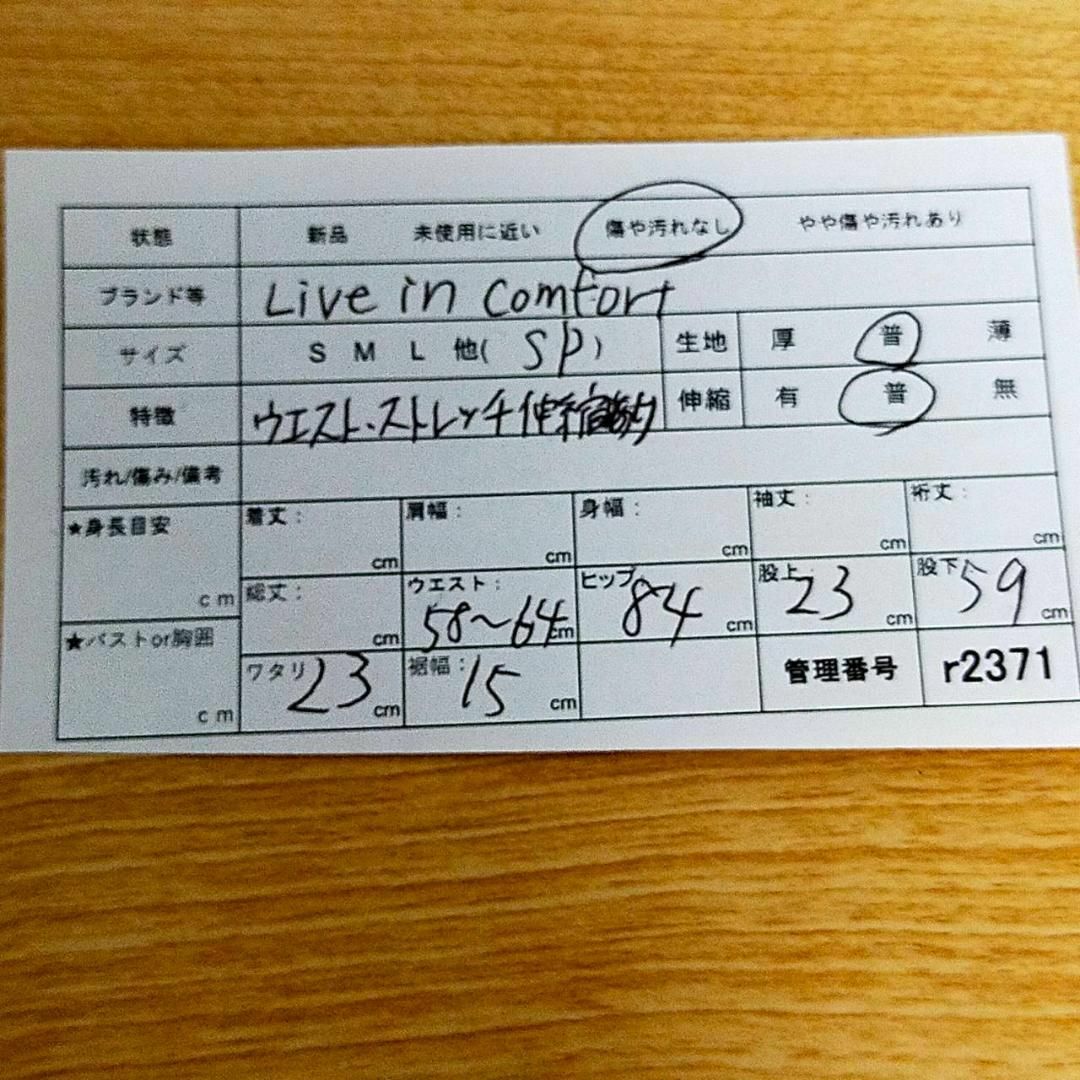 状態 新品 未使用に近い 傷や汚れなし やや傷や汚れあり
ブランド等 Live in comfort
サイズ S M L 他( SP ) 生地 厚 普 薄
特徴 ウエスト、ストレッチ伸縮あり 伸縮 有 普 無
汚れ/傷み/備考
★身長目安 cm 着丈: cm 肩幅: cm 身幅: cm 袖丈: cm 裄丈: cm
総丈: cm ウエスト: 58〜64 cm ヒップ 84 cm 股上: 23 cm 股下: 59 cm
★バストor胸囲 cm ワタリ 23 cm 裾幅: 15 cm 管理番号 r2371